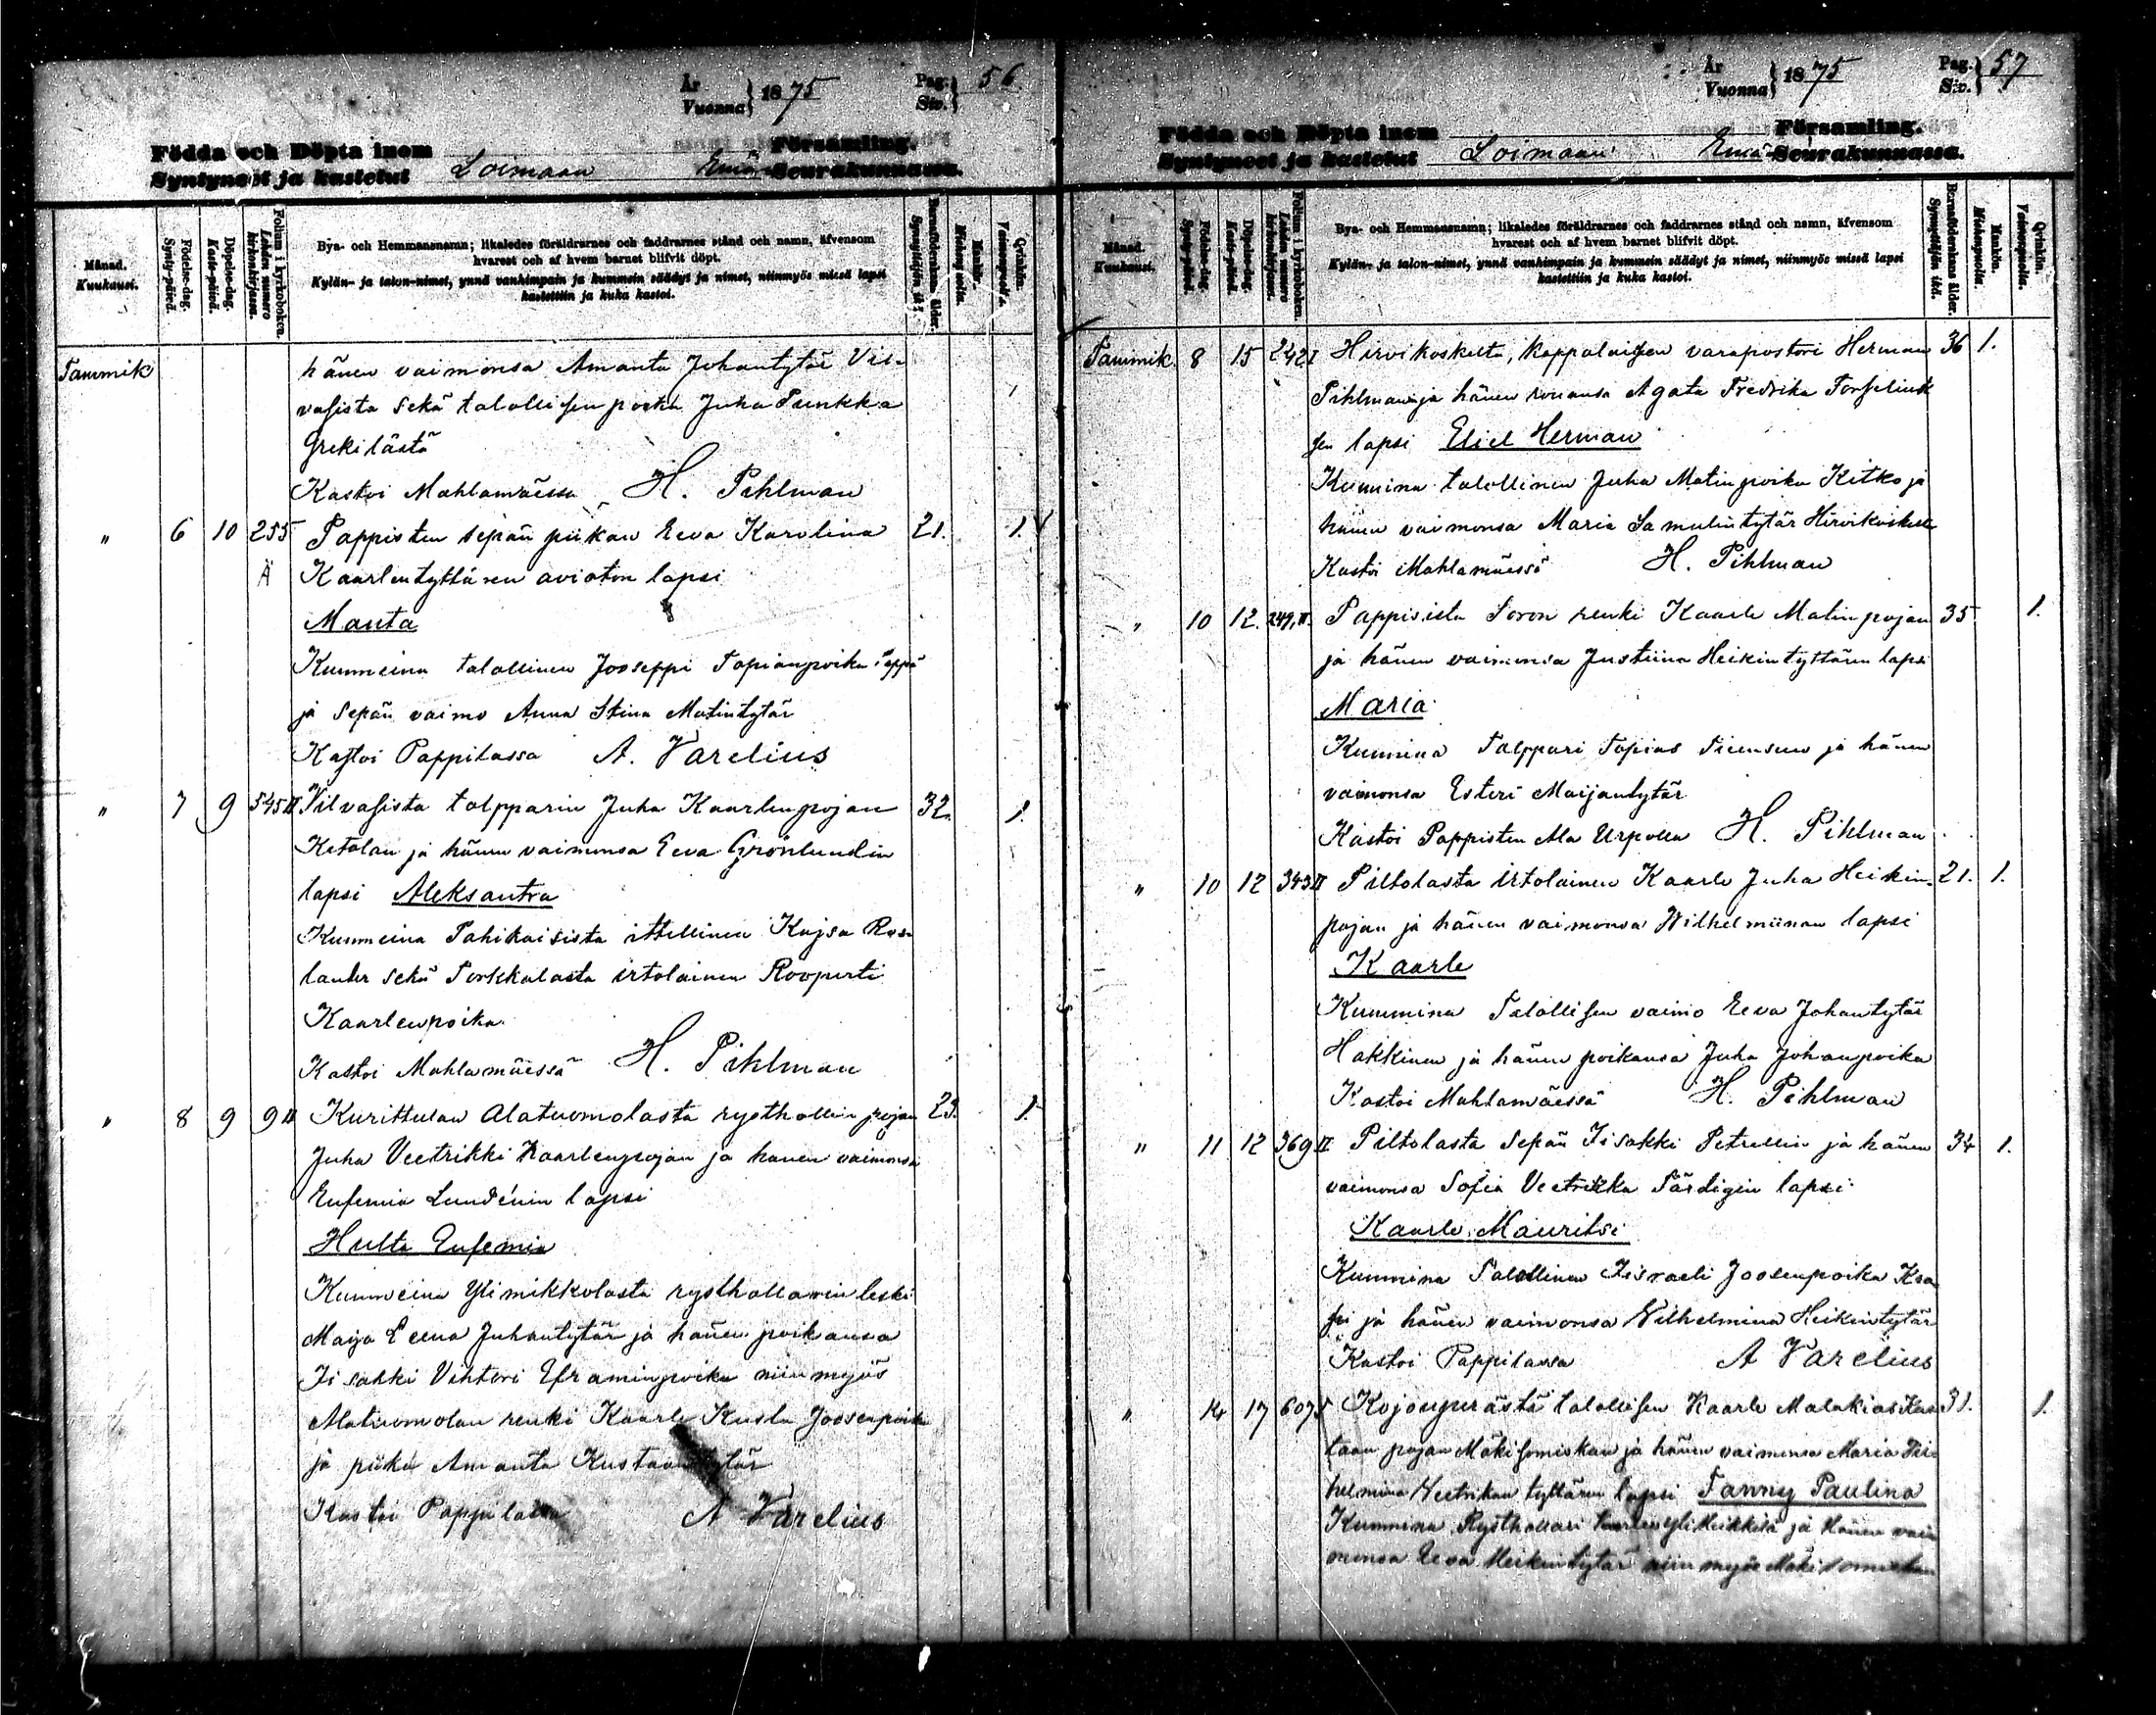 År Vuonna } 1875 Pag. Siv. } 56.
Födda och Döpta inom Församling.
Syntyneet ja kastetut Loimaan Emä Seurakunnassa.
Månad. Kuukausi.
Födelse-dag. Synty-päivä.
Döpelse-dag. Kaste-päivä.
Folium i kyrkoboken. Lehden numero kirkonkirjassa.
Bya- och Hemmansnamn; likaledes föräldrarnes och faddrarnes stånd och namn, äfvensom
hvarest och af hvem barnet blifvit döpt.
Kylän- ja talon-nimet, ynnä vanhimpain ja kummein säädyt ja nimet, niinmyös missä lapsi
kastettiin ja kuka kastoi.
Barnaföderskans ålder. Synnyttäjän ikä.
Mankön. Miehenpuolia.
Qvinkön. Vaimonpuolia.
Tammik hänen vaimonsa Amanta Juhantytär Vil-
vasista sekä talollisen poika Juha Punkka
Grekilästä
Kastoi Mahlamäessä H. Pihlman
" 6 10 255 Pappisten sepän piikan Eeva Karolina 21. 1.
Ä Kaarlentyttären avioton lapsi
Manta
Kummeina talollinen Jooseppi Topianpoika Pappi
ja Sepän vaimo Anna Stina Matintytär
Kastoi Pappilassa A. Varelius
" 7 9 545 II Vilvasista talpparin Juha Kaarlenpojan 32. 1.
Ketolan ja hänen vaimonsa Eeva Grönlundin
lapsi Aleksantra
Kummeina Pahikaisista ittellinen Kajsa Ros-
lanter sekä Torkkalasta irtolainen Roopertti
Kaarlenpoika
Kastoi Mahlamäessä H. Pihlman
" 8 9 9 II Kurittulan Alatuomolasta rysthollin pojan 23. 1.
Juha Veetrikki Kaarlenpojan ja hänen vaimonsa
Eufemia Lundénin lapsi
Hulta Eufemia
Kummeina Ylimikkolasta rysthollarin leski
Maija Leena Juhantytär ja hänen poikansa
Iisakki Vihtori Eframinpoika niin myös
Alatuomolan renki Kaarle Kusta Joosenpoika
ja piika Amanta Kustaantytär
Kastoi Pappilassa A Varelius
År Vuonna } 1875 Pag. Siv. } 57
Födda och Döpta inom Församling.
Syntyneet ja kastetut Loimaan Emä Seurakunnassa.
Månad. Kuukausi.
Födelse-dag. Synty-päivä.
Döpelse-dag. Kaste-päivä.
Folium i kyrkoboken. Lehden numero kirkonkirjassa.
Bya- och Hemmansnamn; likaledes föräldrarnes och faddrarnes stånd och namn, äfvensom
hvarest och af hvem barnet blifvit döpt.
Kylän- ja talon-nimet, ynnä vanhimpain ja kummein säädyt ja nimet, niinmyös missä lapsi
kastettiin ja kuka kastoi.
Barnaföderskans ålder. Synnyttäjän ikä.
Mankön. Miehenpuolia.
Qvinkön. Vaimonpuolia.
Tammik. 8 15 242 I Hirvikoskelta, kappalaisen varapastori Herman 36 1.
Pihlman ja hänen rouansa Agata Fredrika Forselius
sen lapsi Eliel Herman
Kummina talollinen Juha Matinpoika Kitko ja
hänen vaimonsa Maria Samulintytär Hirvikoskelta
Kastoi Mahlamäessä H. Pihlman
" 10 12. 249, II. Pappisista Soron renki Kaarle Matinpojan 35 1.
ja hänen vaimonsa Justiina Heikintyttären lapsi
Maria
Kummina Talppari Topias Simensen ja hänen
vaimonsa Esteri Maijantytär
Kastoi Pappisten Ala Urpolla H. Pihlman
" 10 12 343 II Piltolasta irtolainen Kaarle Juha Heikin- 21. 1.
pojan ja hänen vaimonsa Wilhelmiinan lapsi
Kaarle
Kummina Talollisen vaimo Eeva Johantytär
Hakkinen ja hänen poikansa Juha Johanpoika
Kastoi Mahlamäessä H. Pihlman
" 11 12 369 II Piltolasta Sepän Iisakki Petrellin ja hänen 34 1.
vaimonsa Sofia Veetrikka Färdigin lapsi
Kaarle Mauritsi
Kummina Talollinen Iisraeli Joosenpoika Kra-
pi ja hänen vaimonsa Wilhelmina Heikintytär
Kastoi Pappilassa A Varelius
" 14 17 607 Kojonperästä talollisen Kaarle Malakias Kus- 31. 1.
taan pojan Mäkisomiskan ja hänen vaimonsa Maria Vil-
helmina Veetrikan tyttären lapsi Fanny Paulina
Kummina Rysthollari Kaarle Yliheikkilä ja hänen vai-
monsa Eeva Heikintytär niin myös Mäkisomiskan